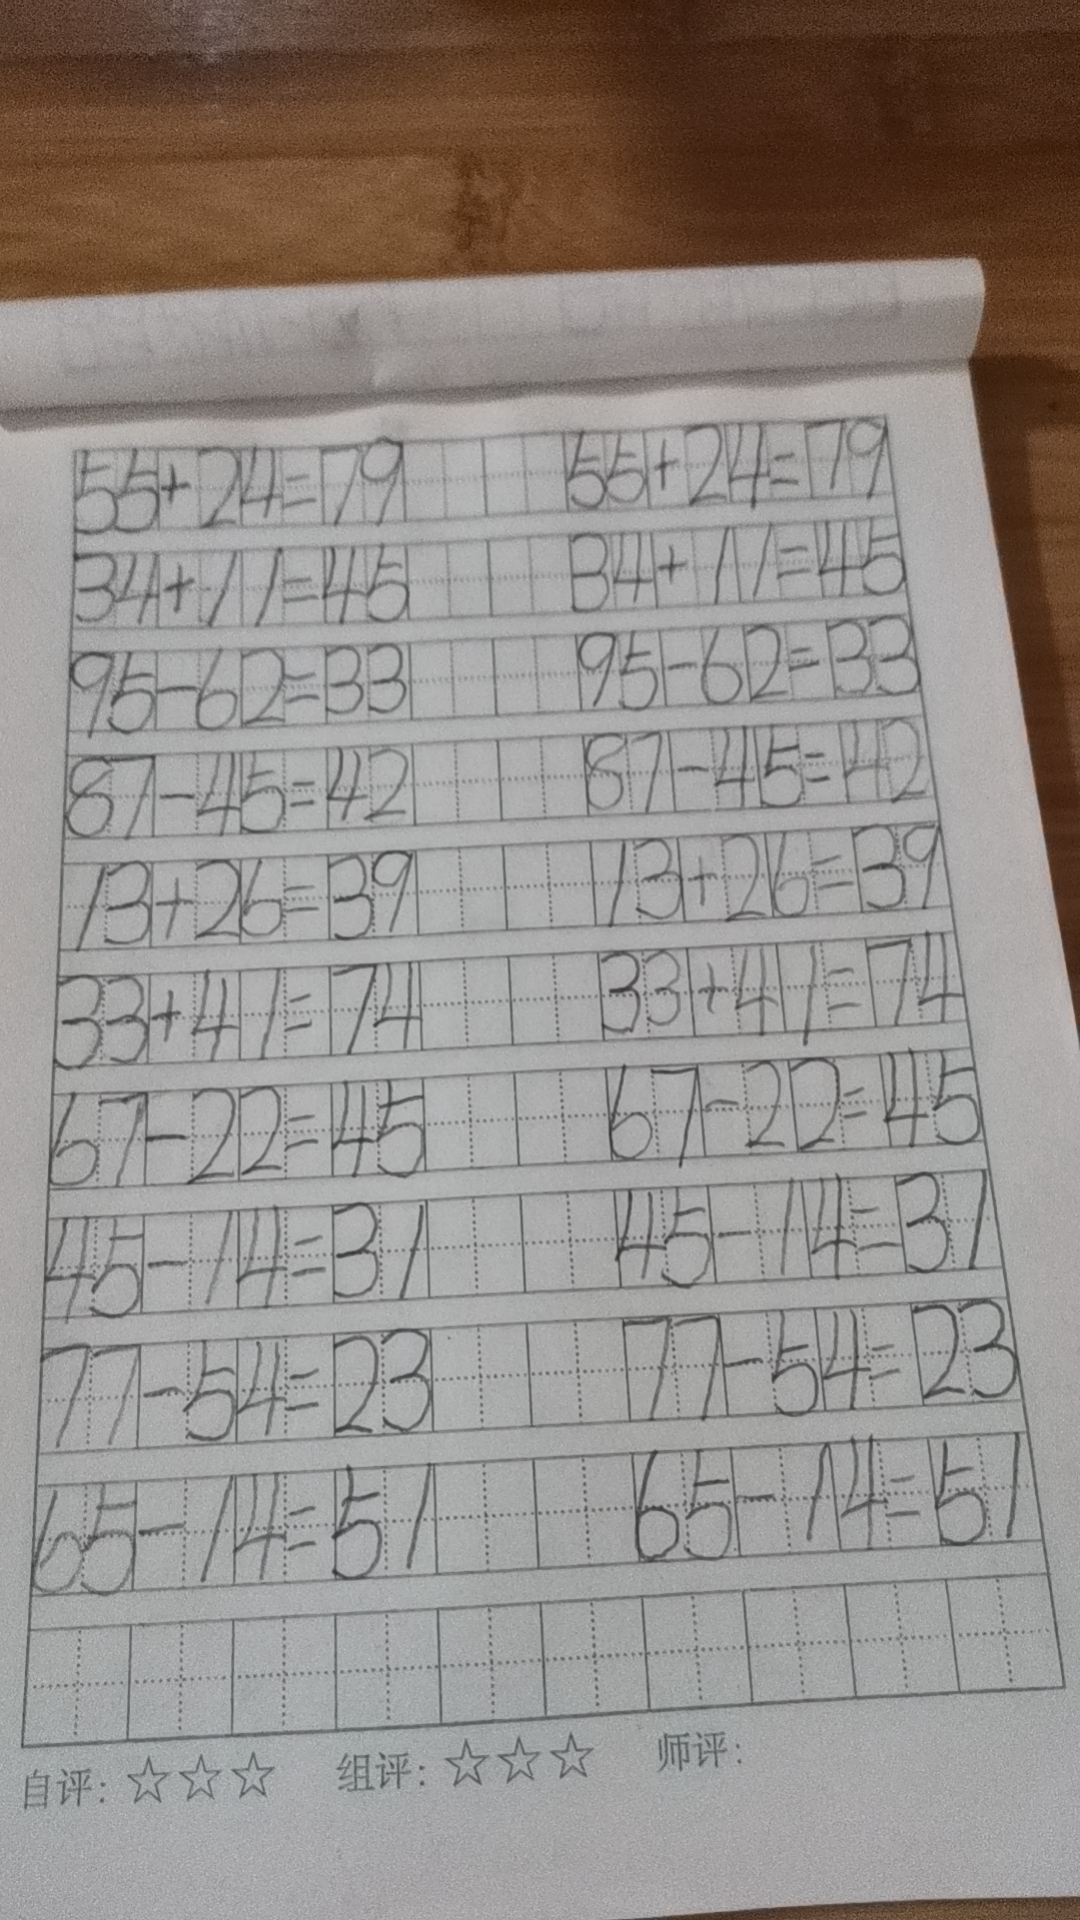 55+24=79 55+24=79
34+11=45 34+11=45
95-62=33 95-62=33
87-45=42 87-45=42
13+26=39 13+26=39
33+41=74 33+41=74
67-22=45 67-22=45
45-14=31 45-14=31
77-54=23 77-54=23
65-14=51 65-14=51
自评:☆☆☆ 组评:☆☆☆ 师评: